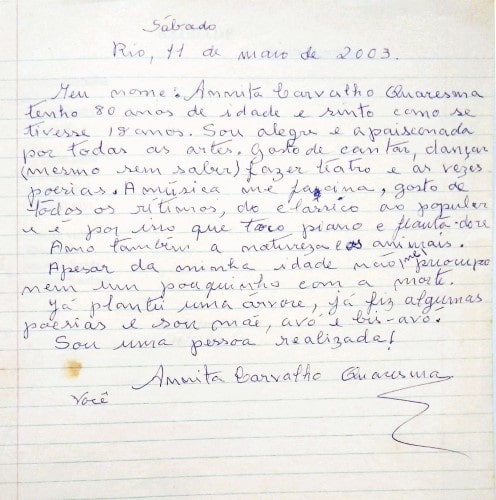 Sábado
Rio, 11 de maio de 2003.
Meu nome: Annita Carvalho Quaresma
tenho 80 anos de idade e sinto como se
tivesse 18 anos. Sou alegre e apaisconada
por todas as artes. Gosto de cantar, dançar
(mesmo sem saber) fazer teatro e as vezes
poesias. A música me fascina, gosto de
todos os rítimos, do clássico ao popular
e é por isso que toco piano e flauta-doce
Amo também a natureza e os animais.
Apesar da minha idade não me preocupo
nem um pouquinho com a morte.
Já plantei uma árvore, já fiz algumas
poesias e sou mãe, avó e bis-avó.
Sou uma pessoa realizada!
Annita Carvalho Quaresma
Você